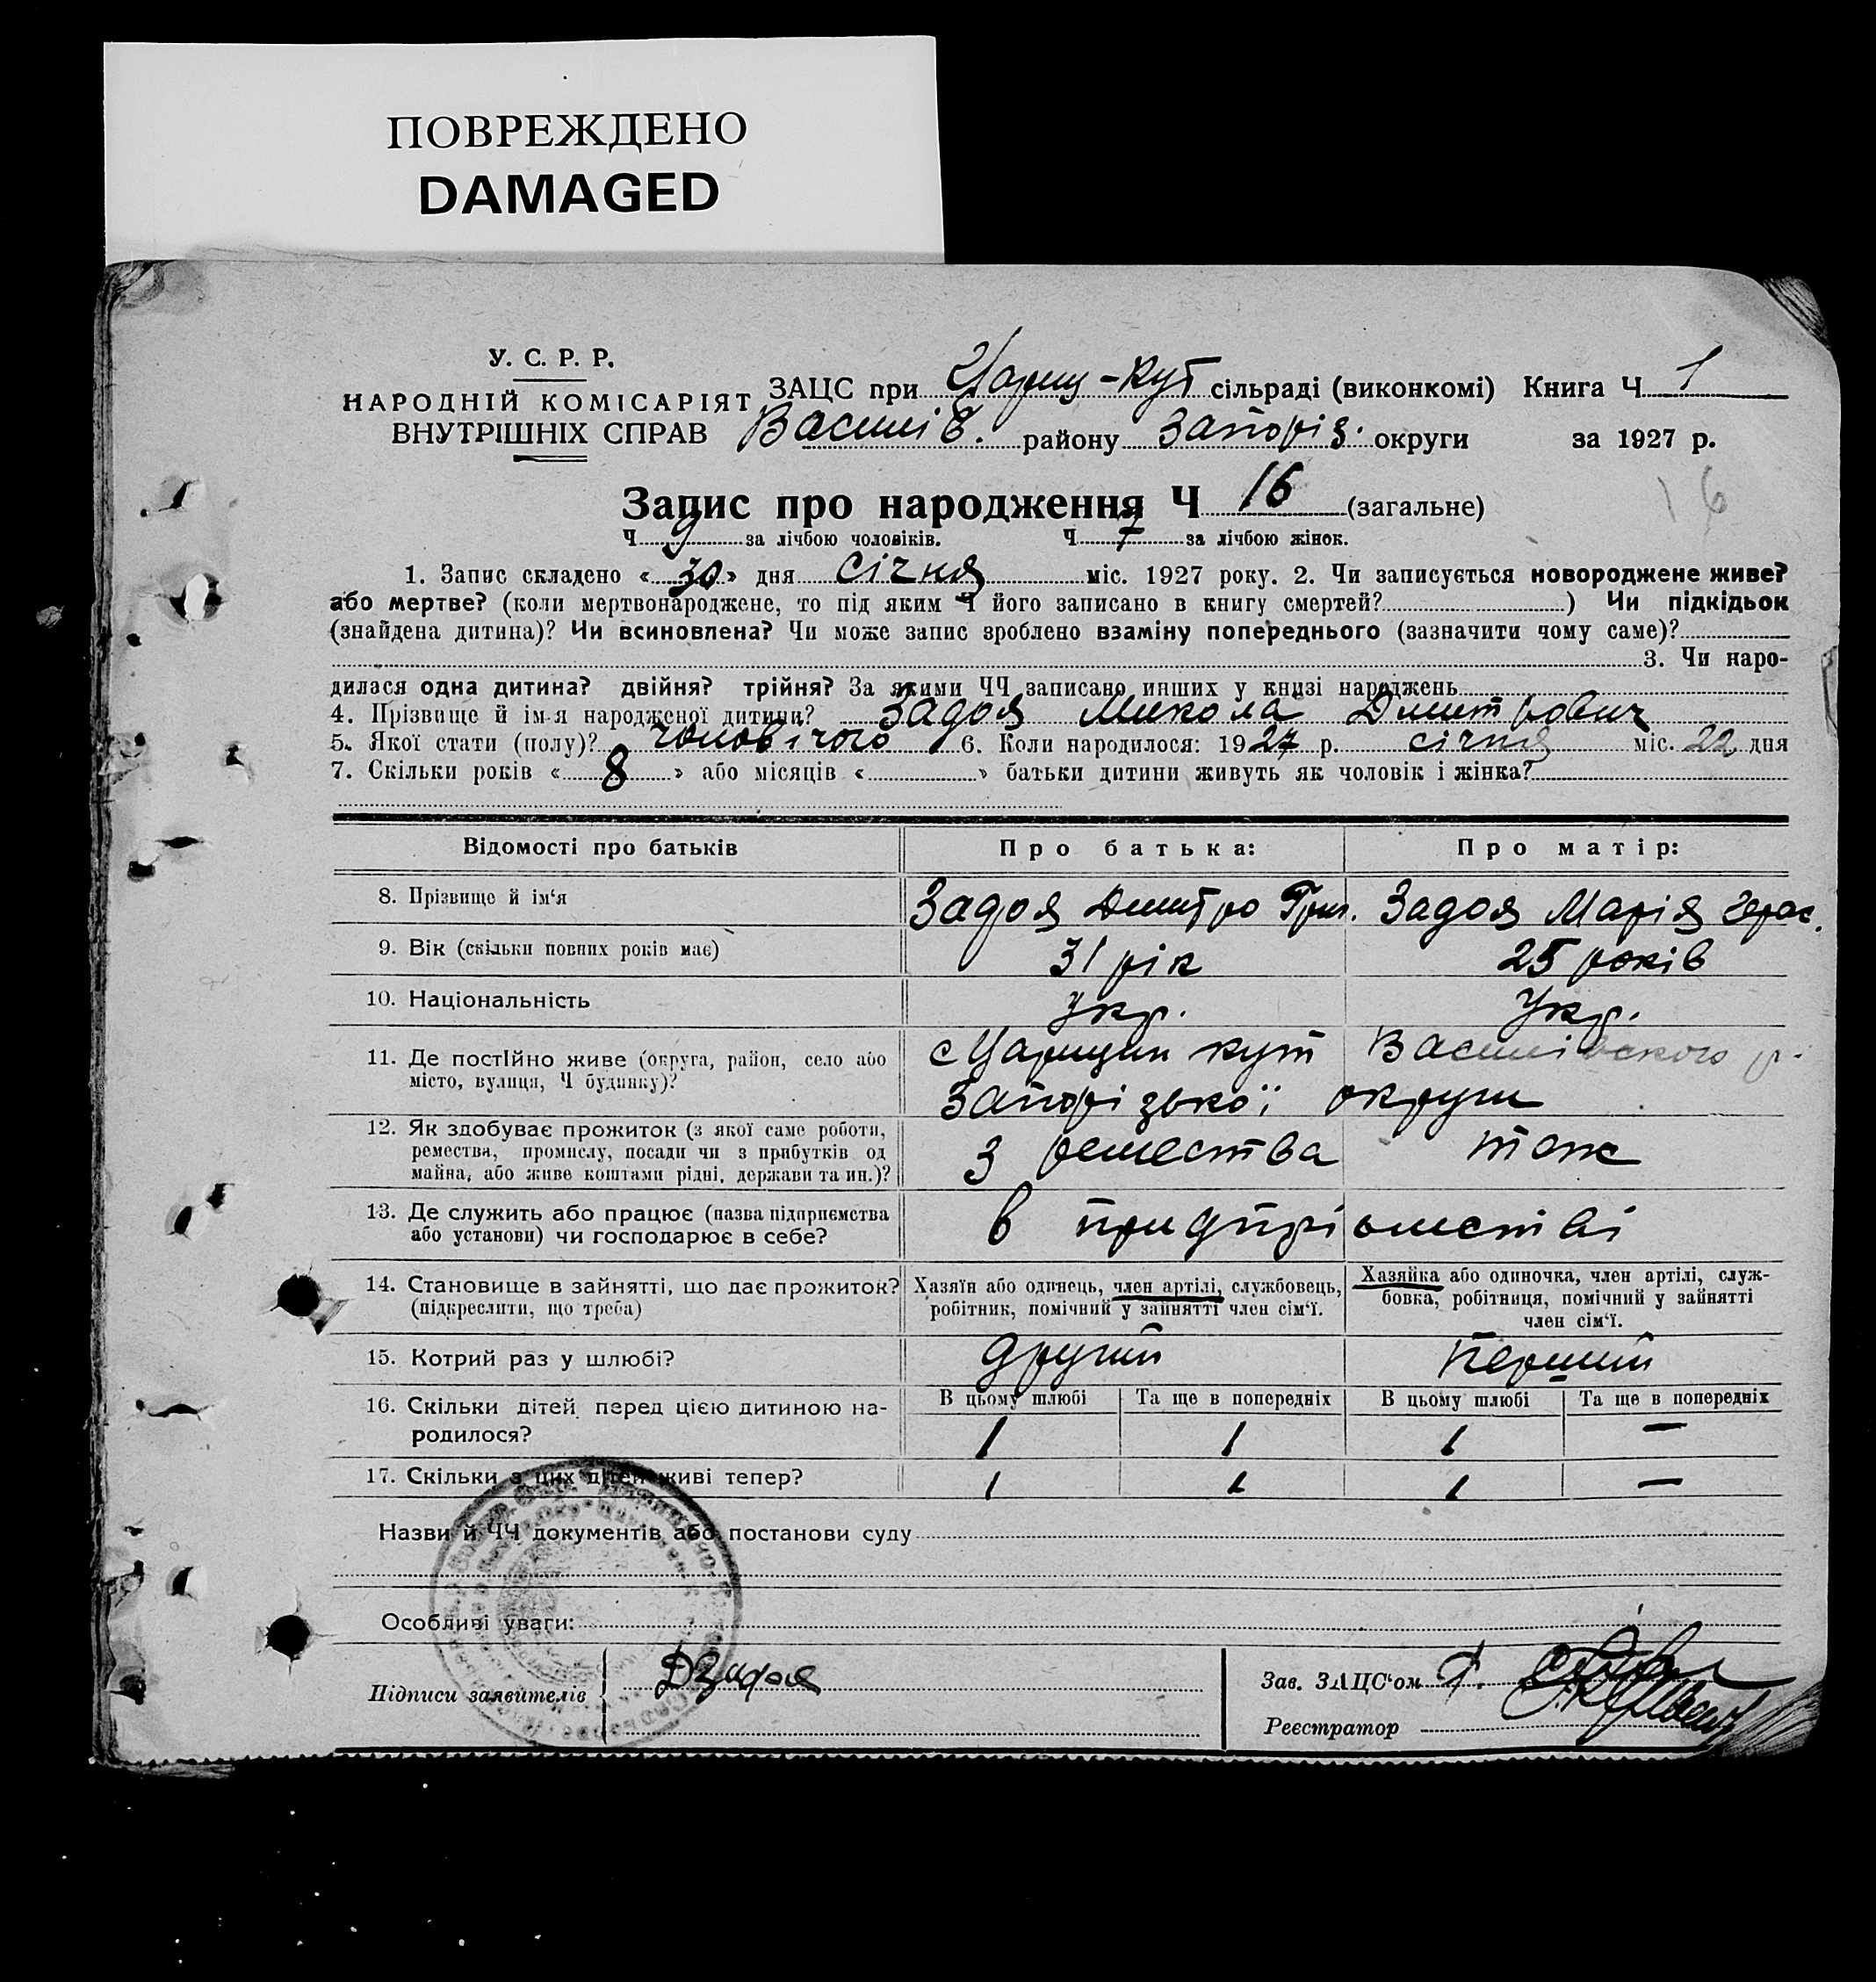 ПОВРЕЖДЕНО
DAMAGED
У. С. Р. Р.
НАРОДНІЙ КОМІСАРІЯТ
ВНУТРІШНІХ СПРАВ
ЗАЦС при Цариц-Кут сільраді (виконкомі) Книга Ч. 1
Василів. району Запоріз. округи за 1927 р.
Запис про народження Ч 16 (загальне)
16
Ч. 9 за лічбою чоловіків. Ч. 7 за лічбою жінок.
1. Запис складено «30» дня січня міс. 1927 року. 2. Чи записується новороджене живе?
або мертве? (коли мертвонароджене, то під яким Ч його записано в книгу смертей?) Чи підкідьок
(знайдена дитина)? Чи всиновлена? Чи може запис зроблено взаміну попереднього (зазначити чому саме)?
3. Чи наро-
дилася одна дитина? двійня? трійня? За якими ЧЧ записано инших у книзі народжень
4. Прізвище й ім-я народженої дитини? Задоя Микола Дмитрович
5. Якої стати (полу)? чоловічого 6. Коли народилося: 1927 р. січня міс. 22 дня
7. Скільки років «8» або місяців « » батьки дитини живуть як чоловік і жінка?
Відомості про батьків Про батька: Про матір:
8. Прізвище й ім‘я Задоя Дмитро Григ. Задоя Марія Герас.
9. Вік (скільки повних років має) 31 рік 25 років
10. Національність Укр. Укр.
11. Де постІйно живе (округа, район, село або
місто, вулиця, Ч будинку)?
с Царицин кут Василівского р.
Запорізької округи
12. Як здобуває прожиток (з якої саме роботи,
ремества, промислу, посади чи з прибутків од
майна, або живе коштами рідні, держави та ин.)?
З ремества тож
13. Де служить або працює (назва підприємства
або установи) чи господарює в себе?
в придпріємстві
14. Становище в зайнятті, що дає прожиток?
(підкреслити, що треба)
Хазяїн або одинець, член артілі, службовець,
робітник, помічний у зайнятті член сім‘ї.
Хазяйка або одиночка, член артілі, служ-
бовка, робітниця, помічний у зайнятті
член сім‘ї.
15. Котрий раз у шлюбі? другий Перший
16. Скільки дітей перед цією дитиною на-
родилося?
В цьому шлюбі Та ще в попередніх В цьому шлюбі Та ще в попередніх
1 1 1 —
17. Скільки з цих дітей живі тепер? 1 1 1 —
Назви й ЧЧ документів або постанови суду
Особливі уваги:
Підписи заявителів ДЗадоя
Зав. ЗАЦС‘ом
Реєстратор